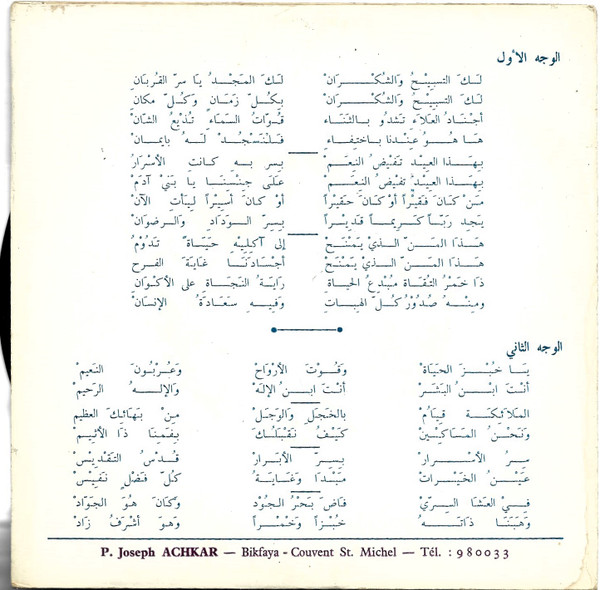 الوجه الأول
لَكَ التسبيحُ وَالشكْرانْ لَكَ المَجْدُ يَا سرّ القربَانْ
لَكَ التسبيحُ وَالشكْرانْ بِكُلّ زَمَانٍ وَكُلّ مكان
أجنَادُ العَلاءِ تَشدُو بالثنَاء قوّاتُ السمَاءِ تُذيعُ الشانْ
هَا هُوَ عِنْدنا باختِفاءِ فلنَسْجُدْ لَهُ بإيمانْ
بهَذا العيْدِ تَفيضُ النِعَمْ بسرٍ بهِ كانتِ الأسْرَارُ
بِهَذا العيْدِ تفيْضُ النِعَمْ عَلَى جنْسِنَا يَا بَنيْ آدَمْ
مَنْ كَانَ فَقيْراً أوْ كانَ حَقيْراً أوْ كانَ أسيْراً ليَأتِ الآنْ
يَجِد رَبّاً كَريماً قَديْراً بِسِرّ الوِدَادِ والرضوانْ
هَذَا المَنّ الذيْ يَمْنَحْ إلى آكِليْهِ حَيَاةً تَدُوْمُ
هَذَا المَنّ الذيْ يَمْنَحْ أجسَادَنَا غايَةَ الفرح
ذَا خَمْرُ التقَاةِ مُبْدِعُ الحياةِ رايَةُ النّجَاةِ على الأكْوَان
ومِنْهُ صُدُوْرُ كُلّ الهِبَاتِ وَفيهِ سَعَادَةُ الإنسَانْ
الوجه الثاني
يَا خُبْزَ الحَيَاةْ وَقُوْتَ الأرْوَاحْ وَعُرْبُونَ النَعيمْ
أنْتَ ابْنُ البَشَرْ أنْتَ ابنُ الإلَهْ وَالإلَهُ الرَحيمْ
المَلائِكَةُ قِيَامْ بالخَجَلِ وَالوَجَلْ مِنْ بَهَائِكَ العظيم
وَنَحْنُ المَسَاكِيْنْ كَيْفَ نَقْبَلُكْ بِفَمِنَا ذَا الأثيمْ
سِرُ الأسْرَارْ بِسِرّ الأبْرَارْ قُدْسُ التَقْدِيْسْ
عَيْنُ الخَيْرَاتْ مَبْدَا وَغَايَةُ كُلّ فَضْلٍ نَفيْسْ
فِي العَشَا السِرّيْ فَاضَ بَحْرُ الجُوْدْ وَكانَ هُوَ الجَوادْ
وَهَبَنَا ذَاتَهُ خُبْزاً وَخَمْراً وَهوَ أشْرَفُ زَادْ
P. Joseph ACHKAR — Bikfaya - Couvent St. Michel — Tél. : 980033